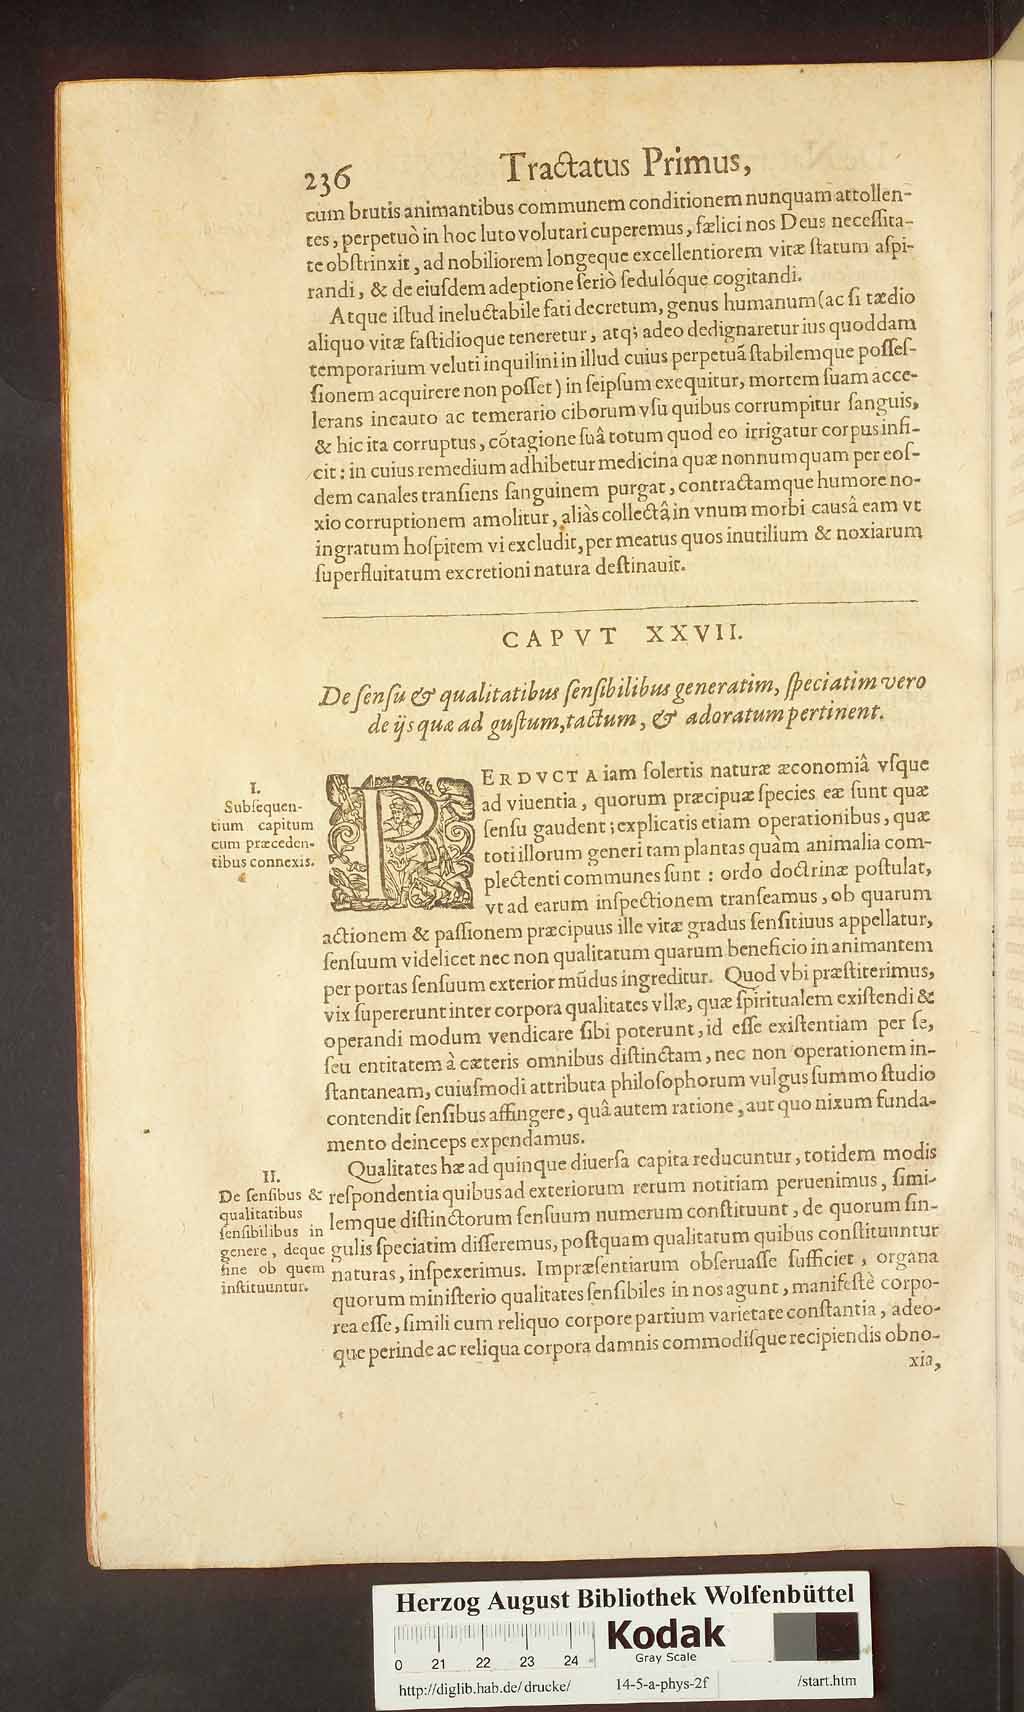 236 Tractatus Primus,
cum brutis animantibus communem conditionem nunquam attollen-
tes, perpetuò in hoc luto volutari cuperemus, fælici nos Deus neceſſita-
te obſtrinxit, ad nobiliorem longeque excellentiorem vitæ ſtatum aſpi-
randi, & de eiuſdem adeptione ſeriò ſedulóque cogitandi.
Atque iſtud ineluctabile fati decretum, genus humanum (ac ſi tædio
aliquo vitæ faſtidioque teneretur, atq; adeo dedignaretur ius quoddam
temporarium veluti inquilini in illud cuius perpetuã ſtabilemque poſſeſ-
ſionem acquirere non poſſet) in ſeipſum exequitur, mortem ſuam acce-
lerans incauto ac temerario ciborum vſu quibus corrumpitur ſanguis,
& hic ita corruptus, cõtagione ſuâ totum quod eo irrigatur corpus infi-
cit: in cuius remedium adhibetur medicina quæ nonnumquam per eoſ-
dem canales tranſiens ſanguinem purgat, contractamque humore no-
xio corruptionem amolitur, aliàs collectâ in vnum morbi causâ eam vt
ingratum hoſpitem vi excludit, per meatus quos inutilium & noxiarum
ſuperfluitatum excretioni natura deſtinauit.
CAPVT XXVII.
De ſenſu & qualitatibus ſenſibilibus generatim, ſpeciatim vero
de ijs quæ ad guſtum, tactum, & adoratum pertinent.
I.
Subſequen-
tium capitum
cum præceden-
tibus connexis.
PERDVCTA iam ſolertis naturæ æconomiâ vſque
ad viuentia, quorum præcipuæ ſpecies eæ ſunt quæ
ſenſu gaudent; explicatis etiam operationibus, quæ
toti illorum generi tam plantas quàm animalia com-
plectenti communes ſunt: ordo doctrinæ poſtulat,
vt ad earum inſpectionem tranſeamus, ob quarum
actionem & paſſionem præcipuus ille vitæ gradus ſenſitiuus appellatur,
ſenſuum videlicet nec non qualitatum quarum beneficio in animantem
per portas ſenſuum exterior mũdus ingreditur. Quod vbi præſtiterimus,
vix ſupererunt inter corpora qualitates vllæ, quæ ſpiritualem exiſtendi &
operandi modum vendicare ſibi poterunt, id eſſe exiſtentiam per ſe,
ſeu entitatem à cæteris omnibus diſtinctam, nec non operationem in-
ſtantaneam, cuiuſmodi attributa philoſophorum vulgus ſummo ſtudio
contendit ſenſibus affingere, quâ autem ratione, aut quo nixum funda-
mento deinceps expendamus.
II.
De ſenſibus &
qualitatibus
ſenſibilibus in
genere, deque
fine ob quem
inſtituuntur.
Qualitates hæ ad quinque diuerſa capita reducuntur, totidem modis
reſpondentia quibus ad exteriorum rerum notitiam peruenimus, ſimi-
lemque diſtinctorum ſenſuum numerum conſtituunt, de quorum ſin-
gulis ſpeciatim diſſeremus, poſtquam qualitatum quibus conſtituuntur
naturas, inſpexerimus. Impræſentiarum obſeruaſſe ſufficiet, organa
quorum miniſterio qualitates ſenſibiles in nos agunt, manifeſtè corpo-
rea eſſe, ſimili cum reliquo corpore partium varietate conſtantia, adeo-
que perinde ac reliqua corpora damnis commodiſque recipiendis obno-
xia,
Herzog August Bibliothek Wolfenbüttel
Kodak
Gray Scale
0 21 22 23 24
http://diglib.hab.de/drucke/ 14-5-a-phys-2f /start.htm